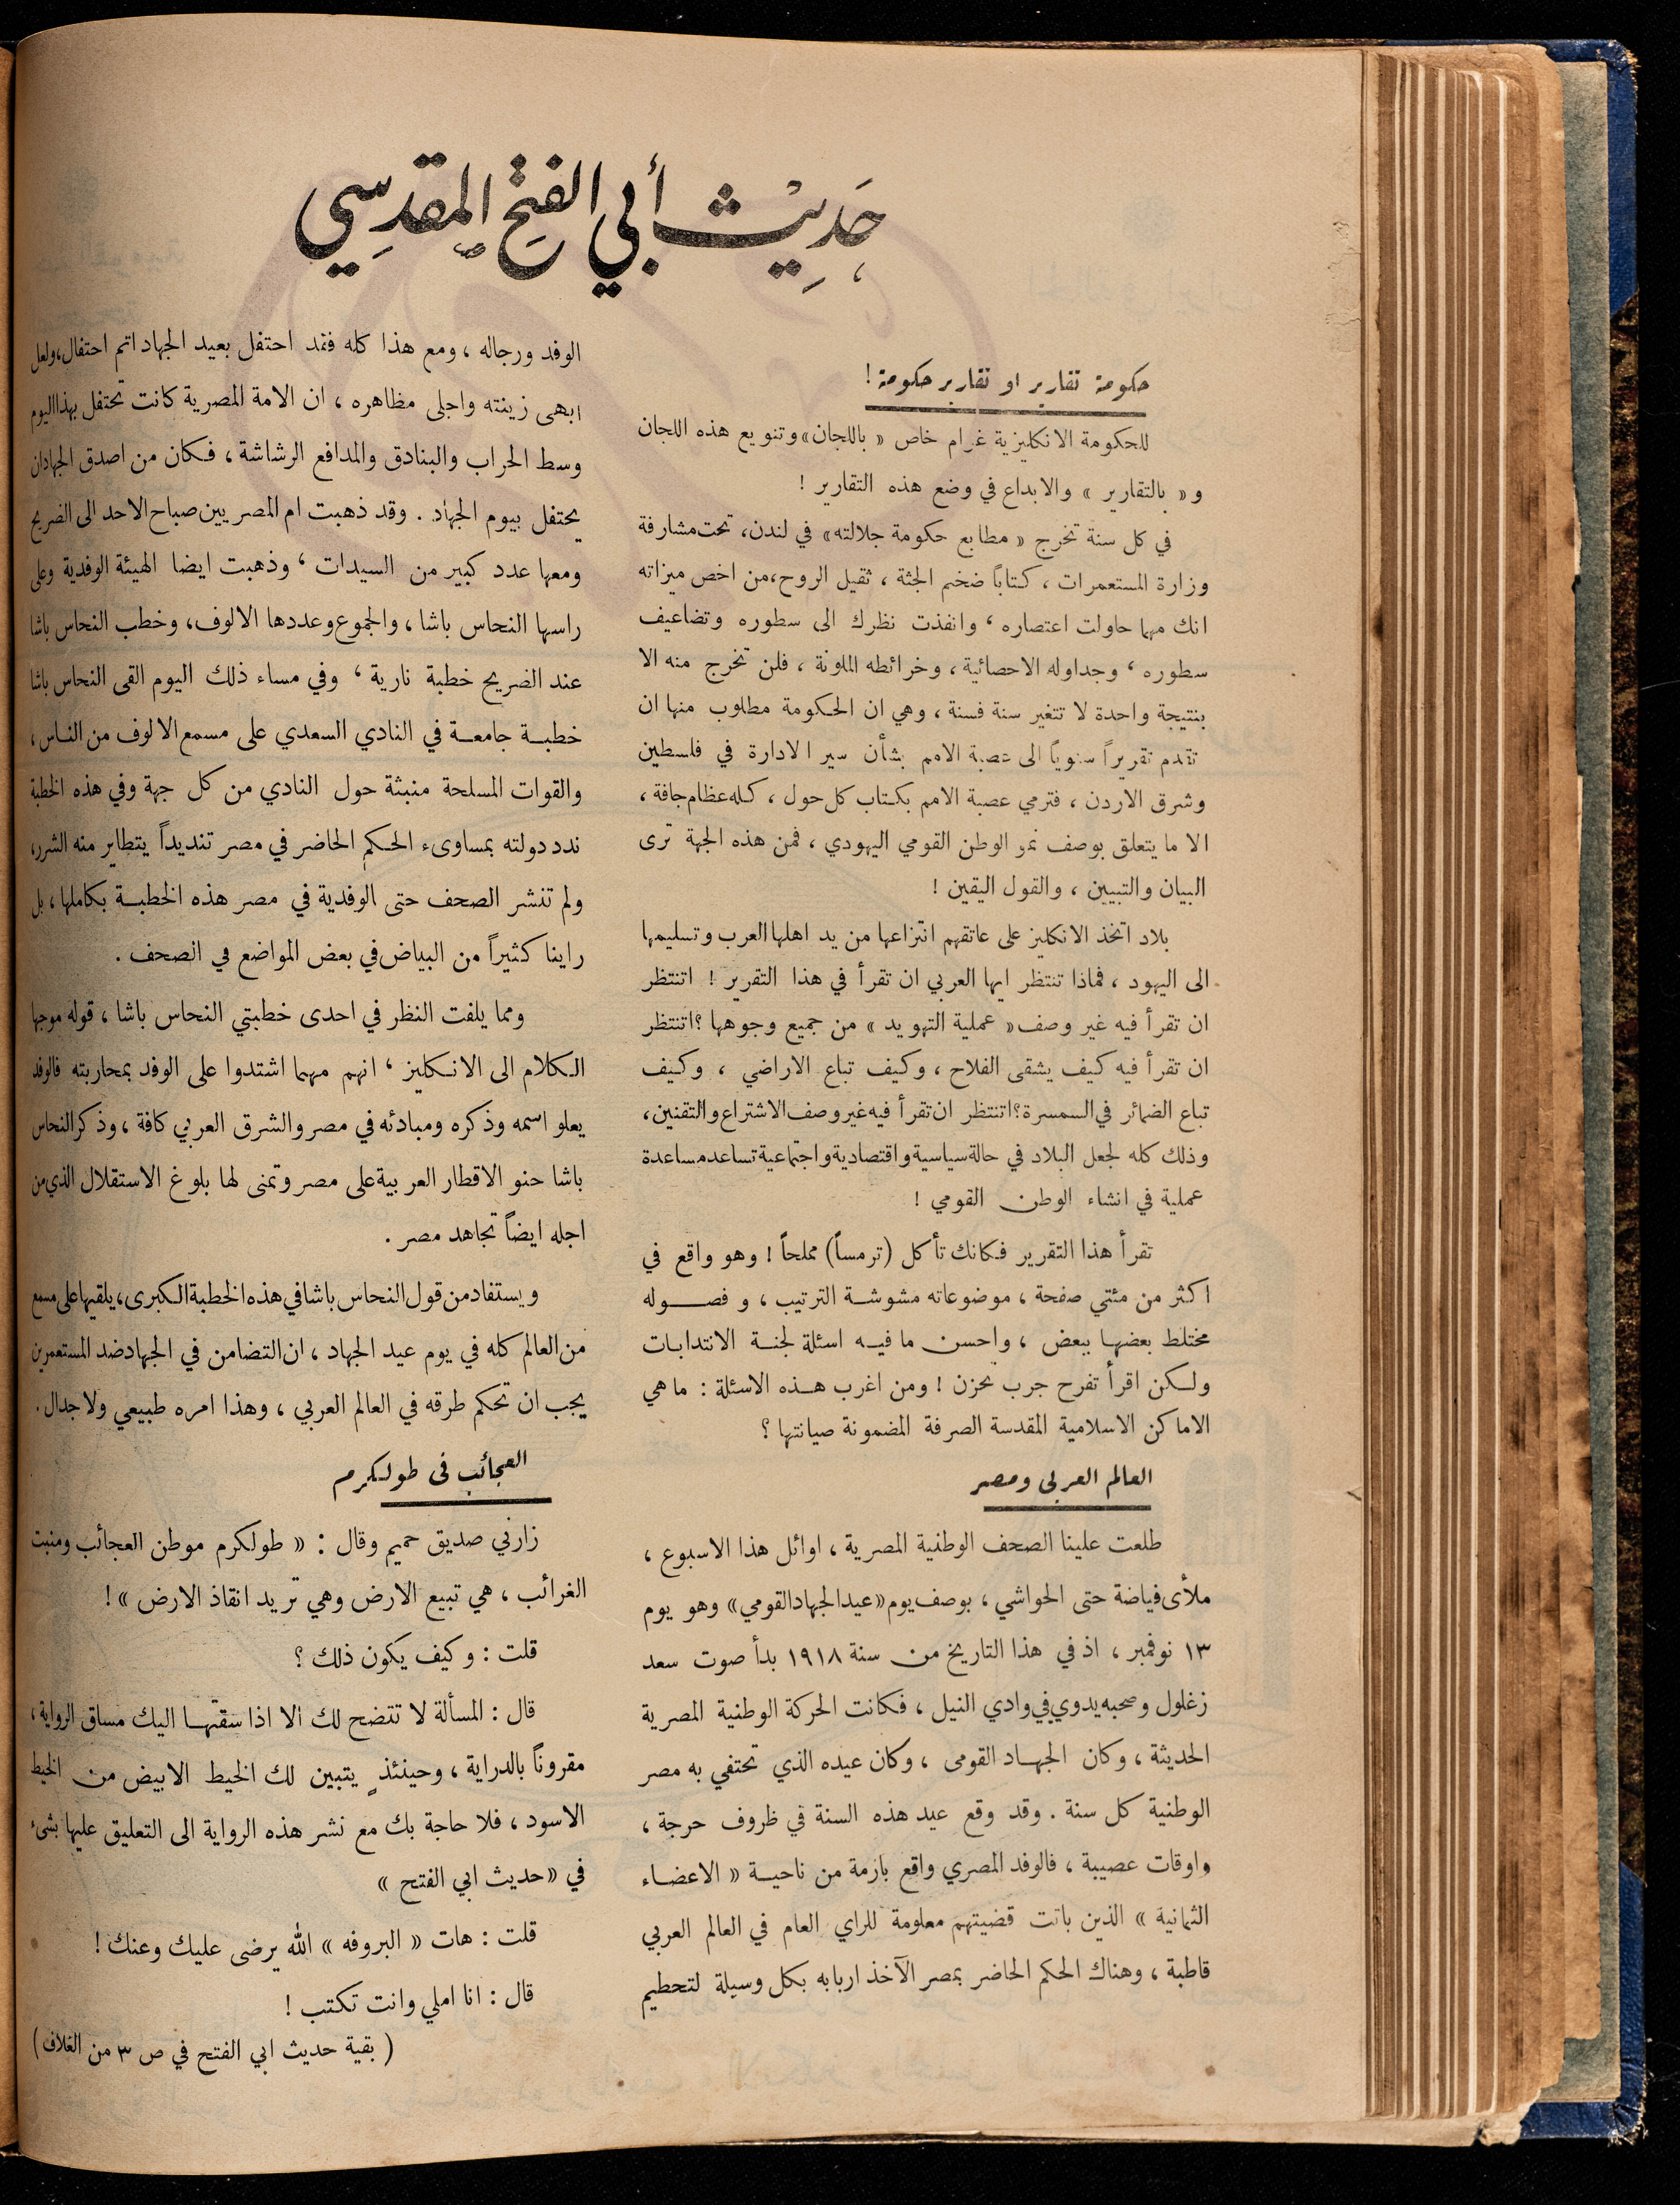 حَدِيْث أبي الفتح المقدسي
حكومة تقارير او تقارير حكومة !
للحكومة الانكليزية غرام خاص « باللجان» وتنويع هذه اللجان
و« بالتقارير » والابداع في وضع هذه التقارير !
في كل سنة تخرج « مطابع حكومة جلالته» في لندن، تحت مشارفة
وزارة المستعمرات ، كتاباً ضخم الجثة ، ثقيل الروح، من اخص ميزاته
انك مهما حاولت اعتصاره ، وانفذت نظرك الى سطوره وتضاعيف
سطوره ، وجداوله الاحصائية ، وخرائطه الملونة ، فلن تخرج منه الا
بنتيجة واحدة لا تتغير سنة فسنة ، وهي ان الحكومة مطلوب منها ان
تقدم تقريراً سنوياً الى عصبة الامم بشأن سير الادارة في فلسطين
وشرق الاردن ، فترمي عصبة الامم بكتاب كل حول ، كله عظام جافة ،
الا ما يتعلق بوصف نمو الوطن القومي اليهودي ، فمن هذه الجهة ترى
البيان والتبيين ، والقول اليقين !
بلاد اتخذ الانكليز على عاتقهم انتزاعها من يد اهلها العرب وتسليمها
الى اليهود ، فماذا تنتظر ايها العربي ان تقرأ في هذا التقرير ! اتنتظر
ان تقرأ فيه غير وصف « عملية التهويد » من جميع وجوهها ؟ اتنتظر
ان تقرأ فيه كيف يشقى الفلاح ، وكيف تباع الاراضي ، وكيف
تباع الضمائر في السمسرة؟ اتنتظر ان تقرأ فيه غير وصف الاشتراع والتقنين،
وذلك كله لجعل البلاد في حالة سياسية واقتصادية واجتماعية تساعد مساعدة
عملية في انشاء الوطن القومي !
تقرأ هذا التقرير فكانك تأكل (ترمساً) مملحاً ! وهو واقع في
اكثر من مئتي صفحة ، موضوعاته مشوشة الترتيب ، و فصوله
مختلط بعضها ببعض ، واحسن ما فيه اسئلة لجنة الانتدابات
ولكن اقرأ تفرح جرب تحزن ! ومن اغرب هذه الاسئلة : ما هي
الاماكن الاسلامية المقدسة الصرفة المضمونة صيانتها ؟
العالم العربي ومصر
طلعت علينا الصحف الوطنية المصرية ، اوائل هذا الاسبوع ،
ملأى فياضة حتى الحواشي ، بوصف يوم «عيد الجهاد القومي» وهو يوم
١٣ نوفمبر ، اذ في هذا التاريخ من سنة ١٩١٨ بدأ صوت سعد
زغلول وصحبه يدوي في وادي النيل ، فكانت الحركة الوطنية المصرية
الحديثة ، وكان الجهاد القومى ، وكان عيده الذي تحتفي به مصر
الوطنية كل سنة . وقد وقع عيد هذه السنة في ظروف حرجة ،
واوقات عصيبة ، فالوفد المصري واقع بازمة من ناحية « الاعضاء
الثمانية » الذين باتت قضيتهم معلومة للراي العام في العالم العربي
قاطبة ، وهناك الحكم الحاضر بمصر الآخذ اربابه بكل وسيلة لتحطيم
الوفد ورجاله ، ومع هذا كله فقد احتفل بعيد الجهاد اتم احتفال، ولعل
ابهى زينته واجلى مظاهره ، ان الامة المصرية كانت تحتفل بهذا اليوم
وسط الحراب والبنادق والمدافع الرشاشة ، فكان من اصدق الجهاد ان
يحتفل بيوم الجهاد . وقد ذهبت ام المصريين صباح الاحد الى الضريح
ومعها عدد كبير من السيدات ، وذهبت ايضا الهيئة الوفدية وعلى
راسها النحاس باشا ، والجموع وعددها الالوف، وخطب النحاس باشا
عند الضريح خطبة نارية ، وفي مساء ذلك اليوم القى النحاس باشا
خطبة جامعة في النادي السعدي على مسمع الالوف من الناس ،
والقوات المسلحة منبثة حول النادي من كل جهة وفي هذه الخطبة
ندد دولته بمساوىء الحكم الحاضر في مصر تنديداً يتطاير منه الشرر،
ولم تنشر الصحف حتى الوفدية في مصر هذه الخطبة بكاملها ، بل
راينا كثيراً من البياض في بعض المواضع في الصحف .
ومما يلفت النظر في احدى خطبتي النحاس باشا ، قوله موجها
الكلام الى الانكليز ، انهم مهما اشتدوا على الوفد بمحاربته فالوفد
يعلو اسمه وذكره ومبادئه في مصر والشرق العربي كافة ، وذكر النحاس
باشا حنو الاقطار العربية على مصر وتمنى لها بلوغ الاستقلال الذي من
اجله ايضاً تجاهد مصر .
ويستفاد من قول النحاس باشا في هذه الخطبة الكبرى، يلقيها على مسمع
من العالم كله في يوم عيد الجهاد ، ان التضامن في الجهاد ضد المستعمرين
يجب ان تحكم طرقه في العالم العربي ، وهذا امره طبيعي ولا جدال .
العجائب في طولكرم
زارني صديق حميم وقال : « طولكرم موطن العجائب ومنبت
الغرائب ، هي تبيع الارض وهي تريد انقاذ الارض » !
قلت : وكيف يكون ذلك ؟
قال : المسألة لا تتضح لك الا اذا سقتها اليك مساق الرواية ،
مقروناً بالدراية ، وحينئذٍ يتبين لك الخيط الابيض من الخيط
الاسود ، فلا حاجة بك مع نشر هذه الرواية الى التعليق عليها بشىء
في «حديث ابي الفتح »
قلت : هات « البروفه » الله يرضى عليك وعنك !
قال : انا املي وانت تكتب !
( بقية حديث ابي الفتح في ص ٣ من الغلاف )